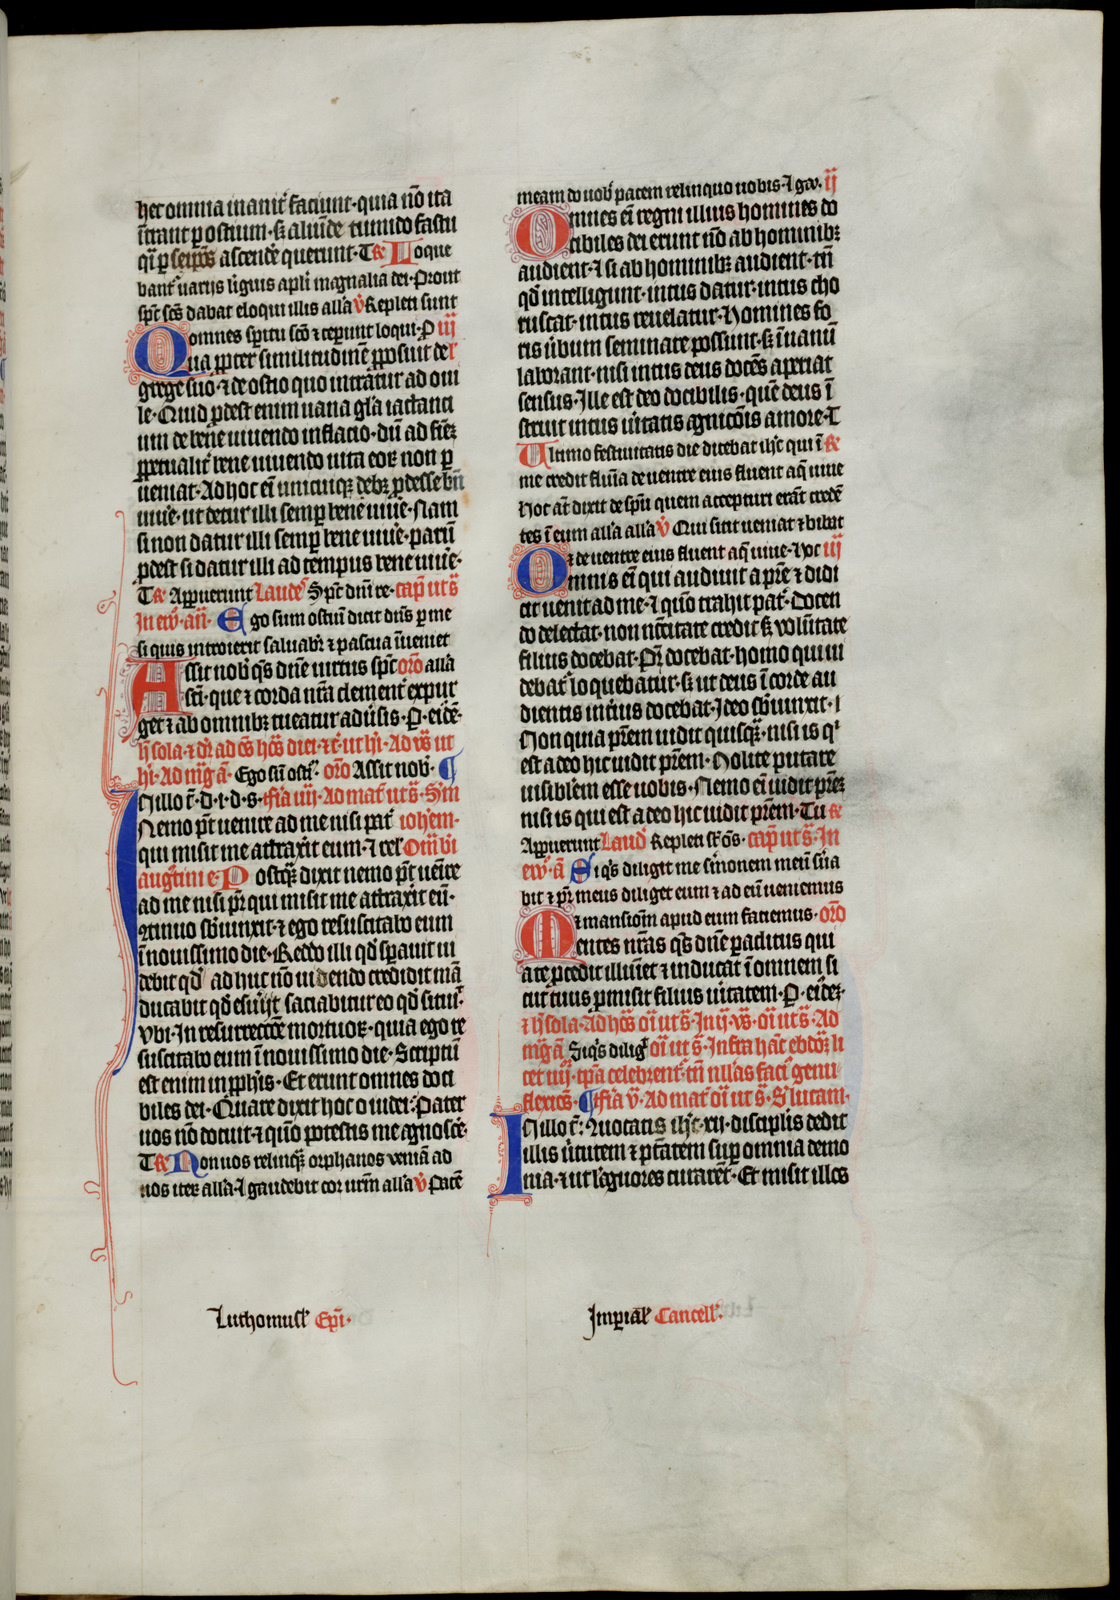 hec omnia inanit᷑ faciunt · quia nō ita
īt̄rant p ostium · sꝫ aliūde tumido fastu
qͥ p seip̄os ascendē querunt · Tu Loque
bant᷑ uarijs liguis apl̓i magnalia dei · Prout
sp̄c sc̄s dabat eloqui illis all̓a v̓ Repleti sunt
omnes sp̄itu sc̄o ⁊ ceperunt loqui · P iij
Qua p̱pter similitudinē p̱posuit de
grege suo · ⁊ de ostio quo intrātur ad oui
le · Quid p̱dest enim uana gl̓a iactanci
um de bene uiuendo inflacio · dū ad finē
p̱petualit᷑ bene uiuendo uita eoꝝ non p̱
ueniat · Ad hoc eī unicuiqꝫ debꝫ p̱desse bn̄
uiuē · ut detur illi semp̱ bene uiuē · Nam
si non datur illi semp̱ bene uiuē · parū
p̱dest si datur illi ad tempus bene uiuē ·
Tu Appuerunt Laudes Sp̄c dn̄i re · cap̄ ut s̄
In ew̄ · añ · Ego sum ostiū dicit dn̄s p̱ me
si quis introierit saluabꝫ ⁊ pascua īueniet
Assit nob̓ qs̄ dn̄e uirtus sp̄c or̄o all̓a
sc̄i · que ⁊ corda nr̄a clement᷑ expur
get ⁊ ab omnibꝫ tueatur adūsis · P · eidē ·
hͥ sola · ⁊ dr̄ ad cs̄ hōs diei · ⁊c̄ · ut hͥ · Ad vs̄ ut
hͥ · Ad mg̓ ā · Ego sū osti · or̄o Assit nob̓ · ¶
In illo t̄ · d · i · d · s · fīa iiij · Ad mat᷑ ut s̄ · S̓m
Nemo pt̄ uenire ad me nisi pat᷑ iohem̄ ·
qui misit me attraxit eum · ⁊ rel̓ Om̄ bī
augtini e · Postqꝫ dixit nemo pt̄ uēire
ad me nisi pr̄ qui misit me attraxit eū ·
9tinuo sb̄iunxit · ⁊ ego resuscitabo eum
ī nouissimo die · Reddo illi qd̓ sp̱auit ui
debit qd̓ ad huc nō uidendo credidit mā
ducabit qd̓ esurijt saciabitur eo qd̓ situi᷑t
vbi · In resurrectōe mortuoꝝ · quia ego re
suscitabo eum ī nouissimo die · Scriptū
est enim in p̱ph̓is · Et erunt omnes doci
biles dei · Quare dixit hoc o iudei · Pater
uos nō docuit · ⁊ quō potestis me agnoscē ·
Tu Non uos relinquā orphanos veniā ad
uos iteꝝ all̓a · ⁊ gaudebit cor urm̄ all̓a v̓ Pacē
meam do uob̓ pacem relinquo uobis · ⁊ gau · ij
Omnes eī regni illius homines do
cibiles dei erunt nō ab hominibꝫ
audient · ⁊ si ab hominibꝫ audient · tn̄
qd̓ intelligunt · intus datur · intus cho
ruscat · intus reuelatur · Homines fo
ris ūbum seminare possunt · sꝫ ī uanū
laborant · nisi intus deus docēs aperiat
sensus · Ille est deo docibilis · quē deus ī
struit intus ūitatis agnicōis amore · T
Ultimo festiuitatis die dicebat ih̓c qui ī u
me credit flūia de uentre eius fluent aq̄ uiue
Hoc at̄ dixit de sp̄u quem accepturi erāt credē
tes ī eum all̓a all̓a v̓ Qui sitit ueniat ⁊ bibat
Et de uentre eius fluent aq̄ uiue · Hoc iij
Omnis eī qui audiuit a pr̄e ⁊ didi
cit uenit ad me · ⁊ quō trahit pat᷑ · Docen
do delectat · non nc̄citate credit sꝫ volūtate
filius docebat · Pr̄ docebat · homo qui ui
debat᷑ loquebatur · sꝫ ut deus ī corde au
dientis intius docebat · Ideo sb̄iunxit · ·
Non quia pr̄em uidit quisqꝫ · nisi is qͥ
est a deo hic uidit pr̄em · Nolite putare
uisibl̓em esse uobis · Nemo eī uidit pr̄eꝫ
nisi is qui est a deo hic uidit pr̄em · Tu
Appuerunt Laud̓ Repleti st̄ oēs · cap̄ ut s̄ · In
ew̄ · ā Siqs̄ diligit me s̓monem meū s̓ua
bit ⁊ pr̄ meus diliget eum ⁊ ad eū ueniemus
⁊ mansiōm apud eum faciemus · or̄o
Mentes nr̄as qs̄ dn̄e paclitus qui
a te p̱cedit illuīet ⁊ inducat ī omnem si
cut tuus p̱misit filius ūitatem · P · eideꝫ ·
⁊ hͥ sola · Ad hōs oī ut s̄ · In ij · vs̄ · oī ut s̄ · Ad
mg̓ ā Siqs̄ dilig᷑ oī ut s̄ · Infra hāc ebdoꝫ li
cet iiij · tp̄a celebrent᷑ · tn̄ nll̓as faci᷑ genu
flexiōs · ¶ fīa v̄ · Ad mat᷑ oī ut s̄ · S̓ lucam ·
In illo t̄ : 9uocatis ih̓c · xij · discipl̓is dedit
illis ūtutem ⁊ pt̄atem sup̱ omnia demo
nia · ⁊ ut lāguores curarēt · Et misit illos
Luthomusl̓ Ep̄i ·
Imperial̓ Cancell̓ ·